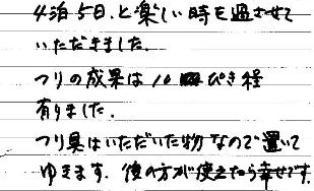 4泊5日.と楽しい時を過させて
いただきました.
つりの成果は10ぴき程
有りました.
つり具はいただいた物なので置いて
ゆきます.後の方が使えたら幸せです.